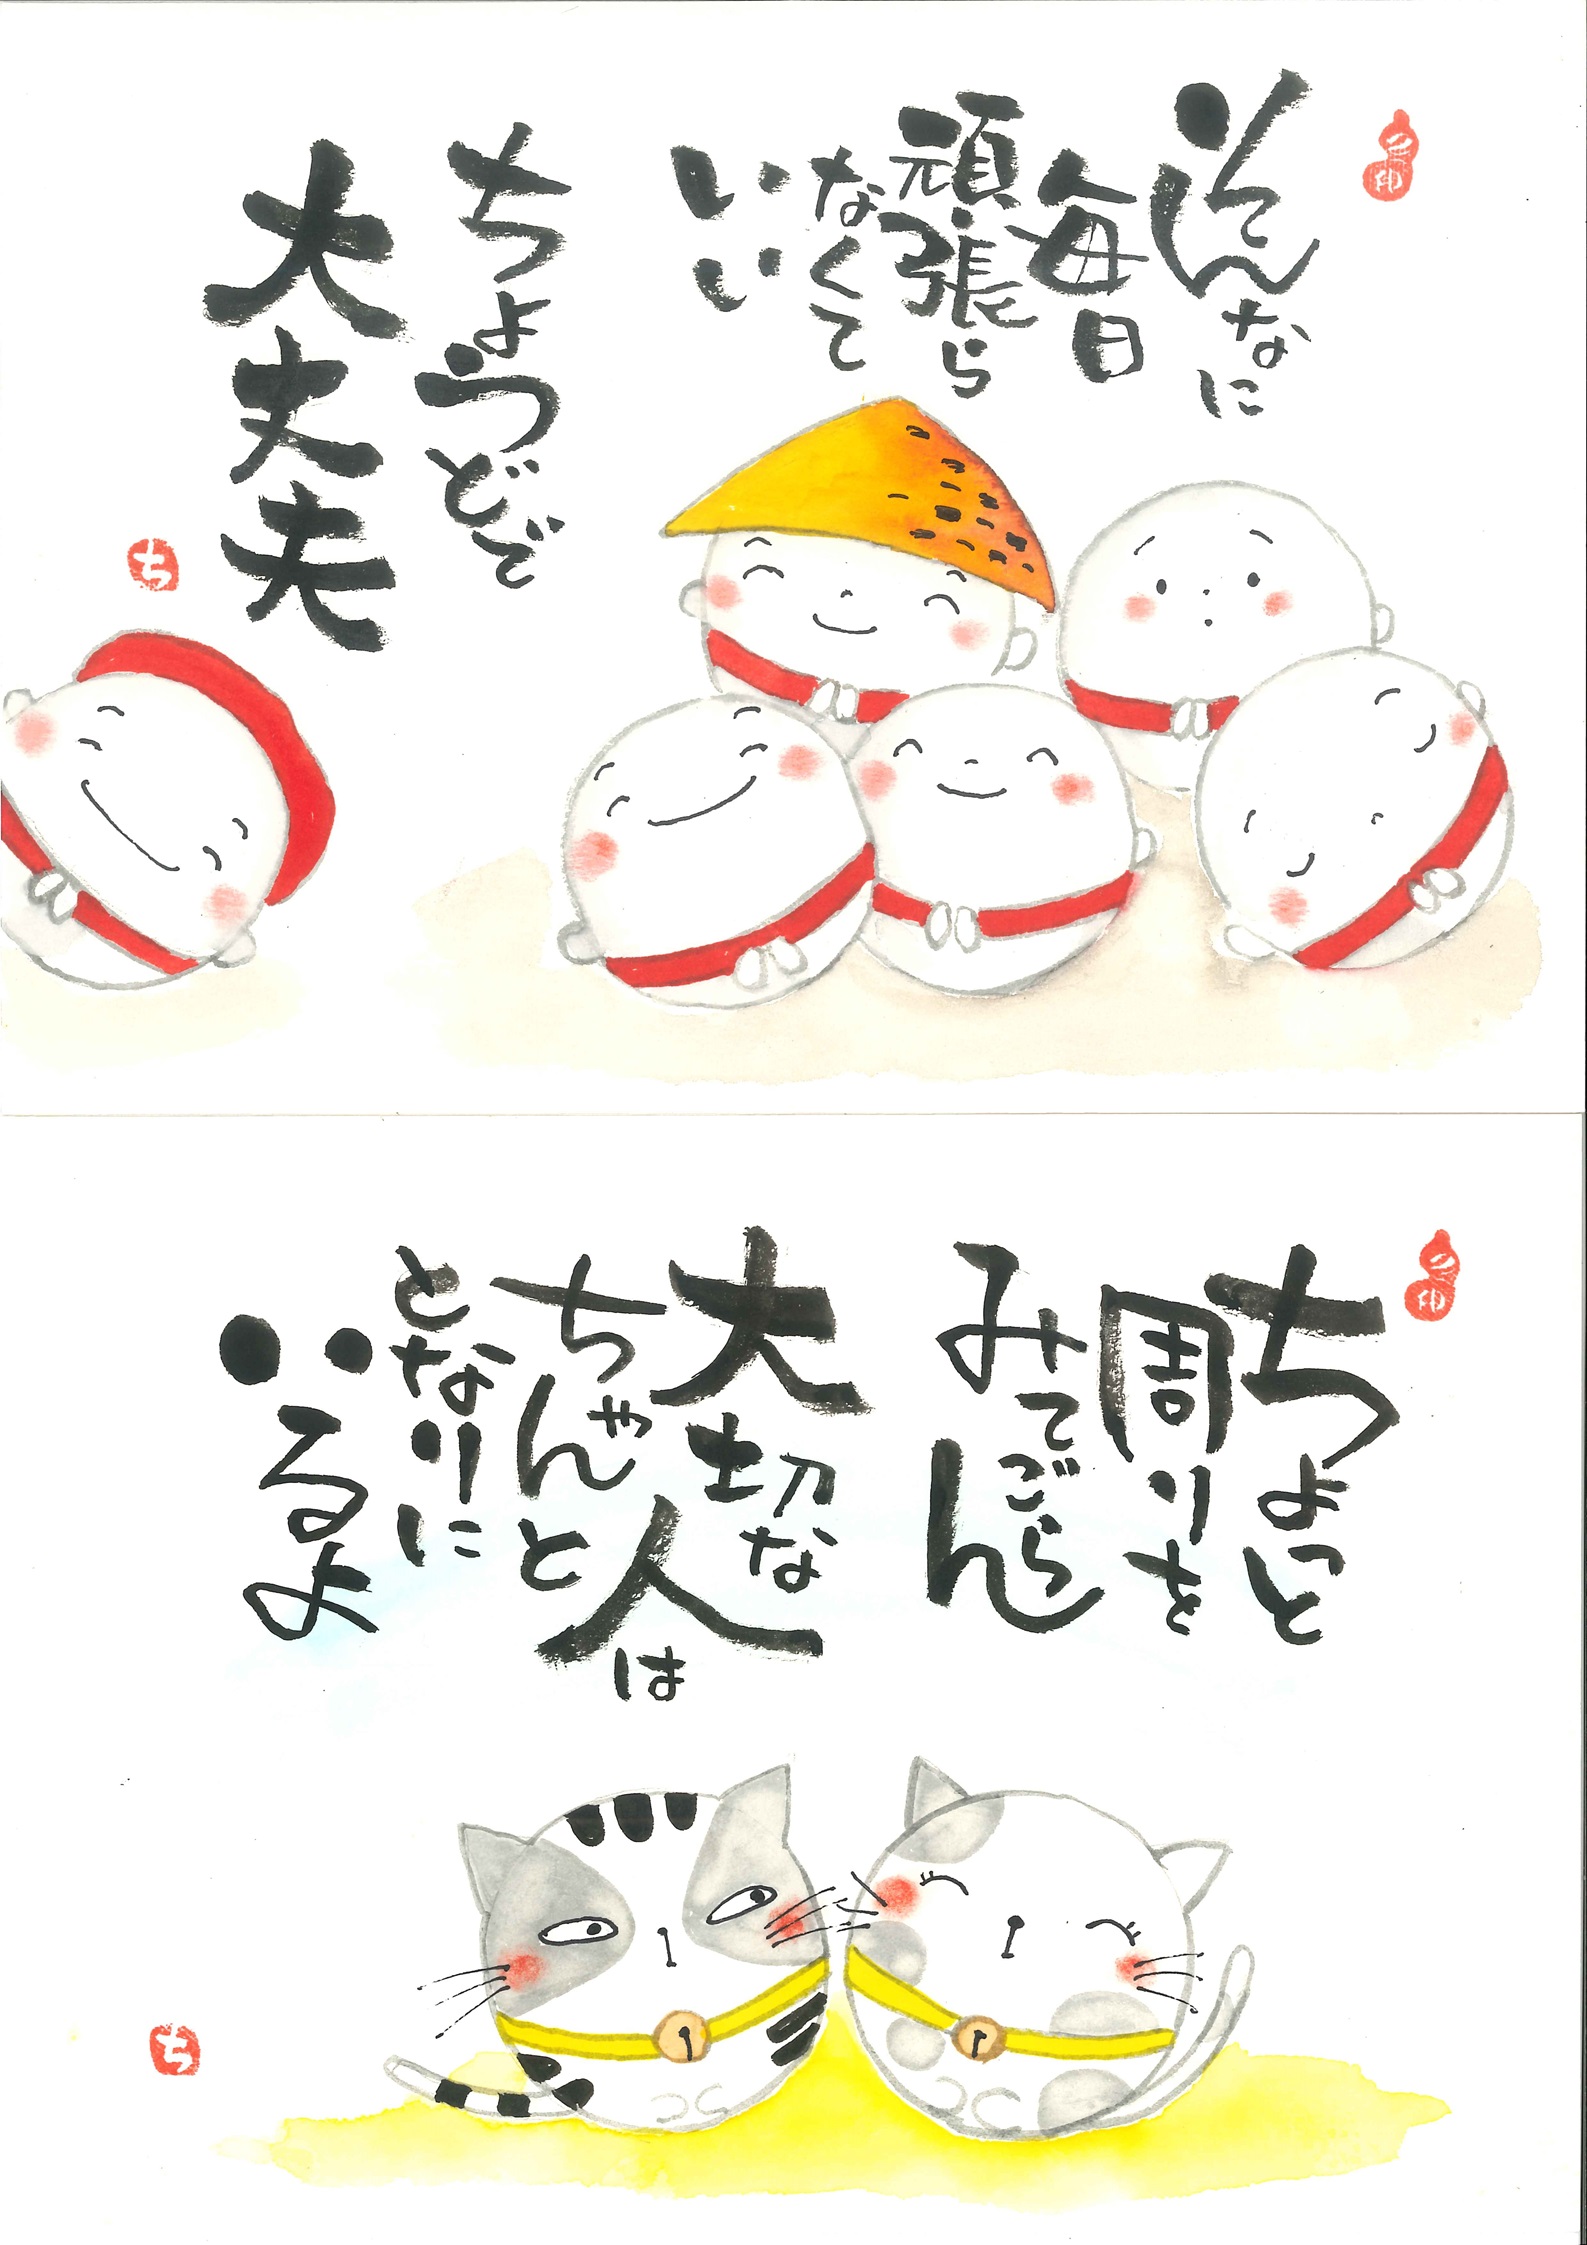 そんなに
毎日
頑張ら
なくて
いい
ちょうどで
大丈夫
ち
ちょっと
周りを
みてごらん
大切な人は
ちゃんと
となりに
いるよ
ち